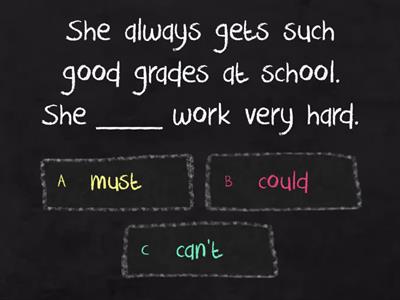 She always gets such
good grades at school.
She _____ work very hard.
A must
B could
C can't